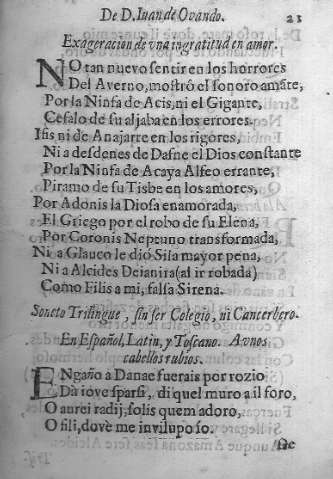 De D. Iuan de Ovando. 21
Exageracion de vna ingratitud en amor.
NO tan nuevo sentir en los horrores
Del Averno, mostró el sonoro amãte,
Por la Ninfa de Acis, ni el Gigante,
Cefalo de su aljaba en los errores.
Ifis ni de Anajarte en los rigores,
Ni a desdenes de Dafne el Dios constante
Por la Ninfa de Acaya Alfeo errante,
Piramo de su Tisbe en los amores,
Por Adonis la Diosa enamorada,
El Griego por el robo de su Elena,
Por Coronis Neptuno transformada,
Ni a Glauco le dió Sila mayor pena,
Ni a Alcides Deianira (al ir robada)
Como Filis a mi, falsa Sirena.
Soneto Trilingue, sin ser Colegio, ni Cancerbero.
En Español, Latin, y Toscano. A vnos
cabellos rubios.
ENgaño a Danae fuerais por rozio
Dà iove sparsi, di quel muro a il foro,
O aurei radij, solis quem adoro,
O fili, dovè me inviluposo.
Hac